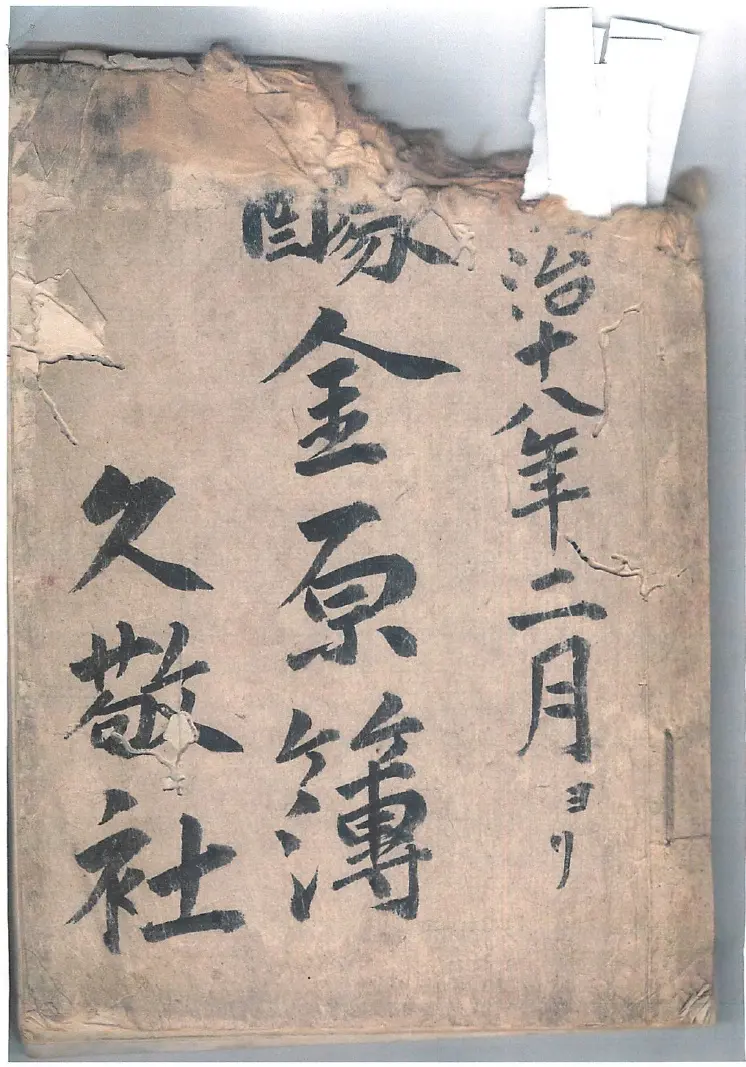 治十八年二月ヨリ
金原簿
久敬社